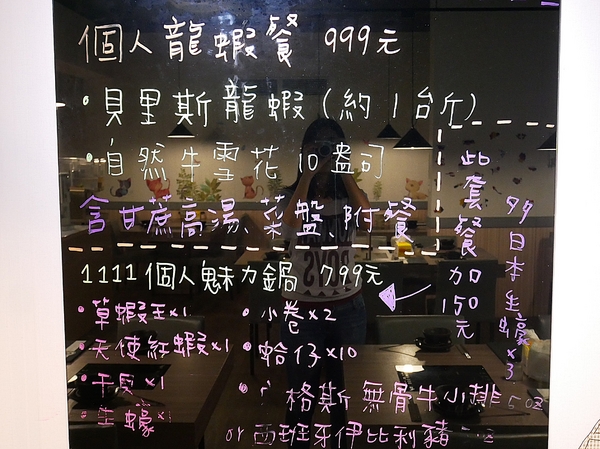 個人龍蝦餐 999元
・貝里斯龍蝦(約1台斤)
・自然牛雪花10盎司
含甘蔗高湯、菜盤、附餐
1111個人魅力鍋 799元
・草蝦王x1
・天使紅蝦x1
・干貝x1
・生蠔x1
・小卷x2
・蛤仔x10
格斯無骨牛小排5oz
or西班牙伊比利豬
此套餐加150元
日本生蠔x3